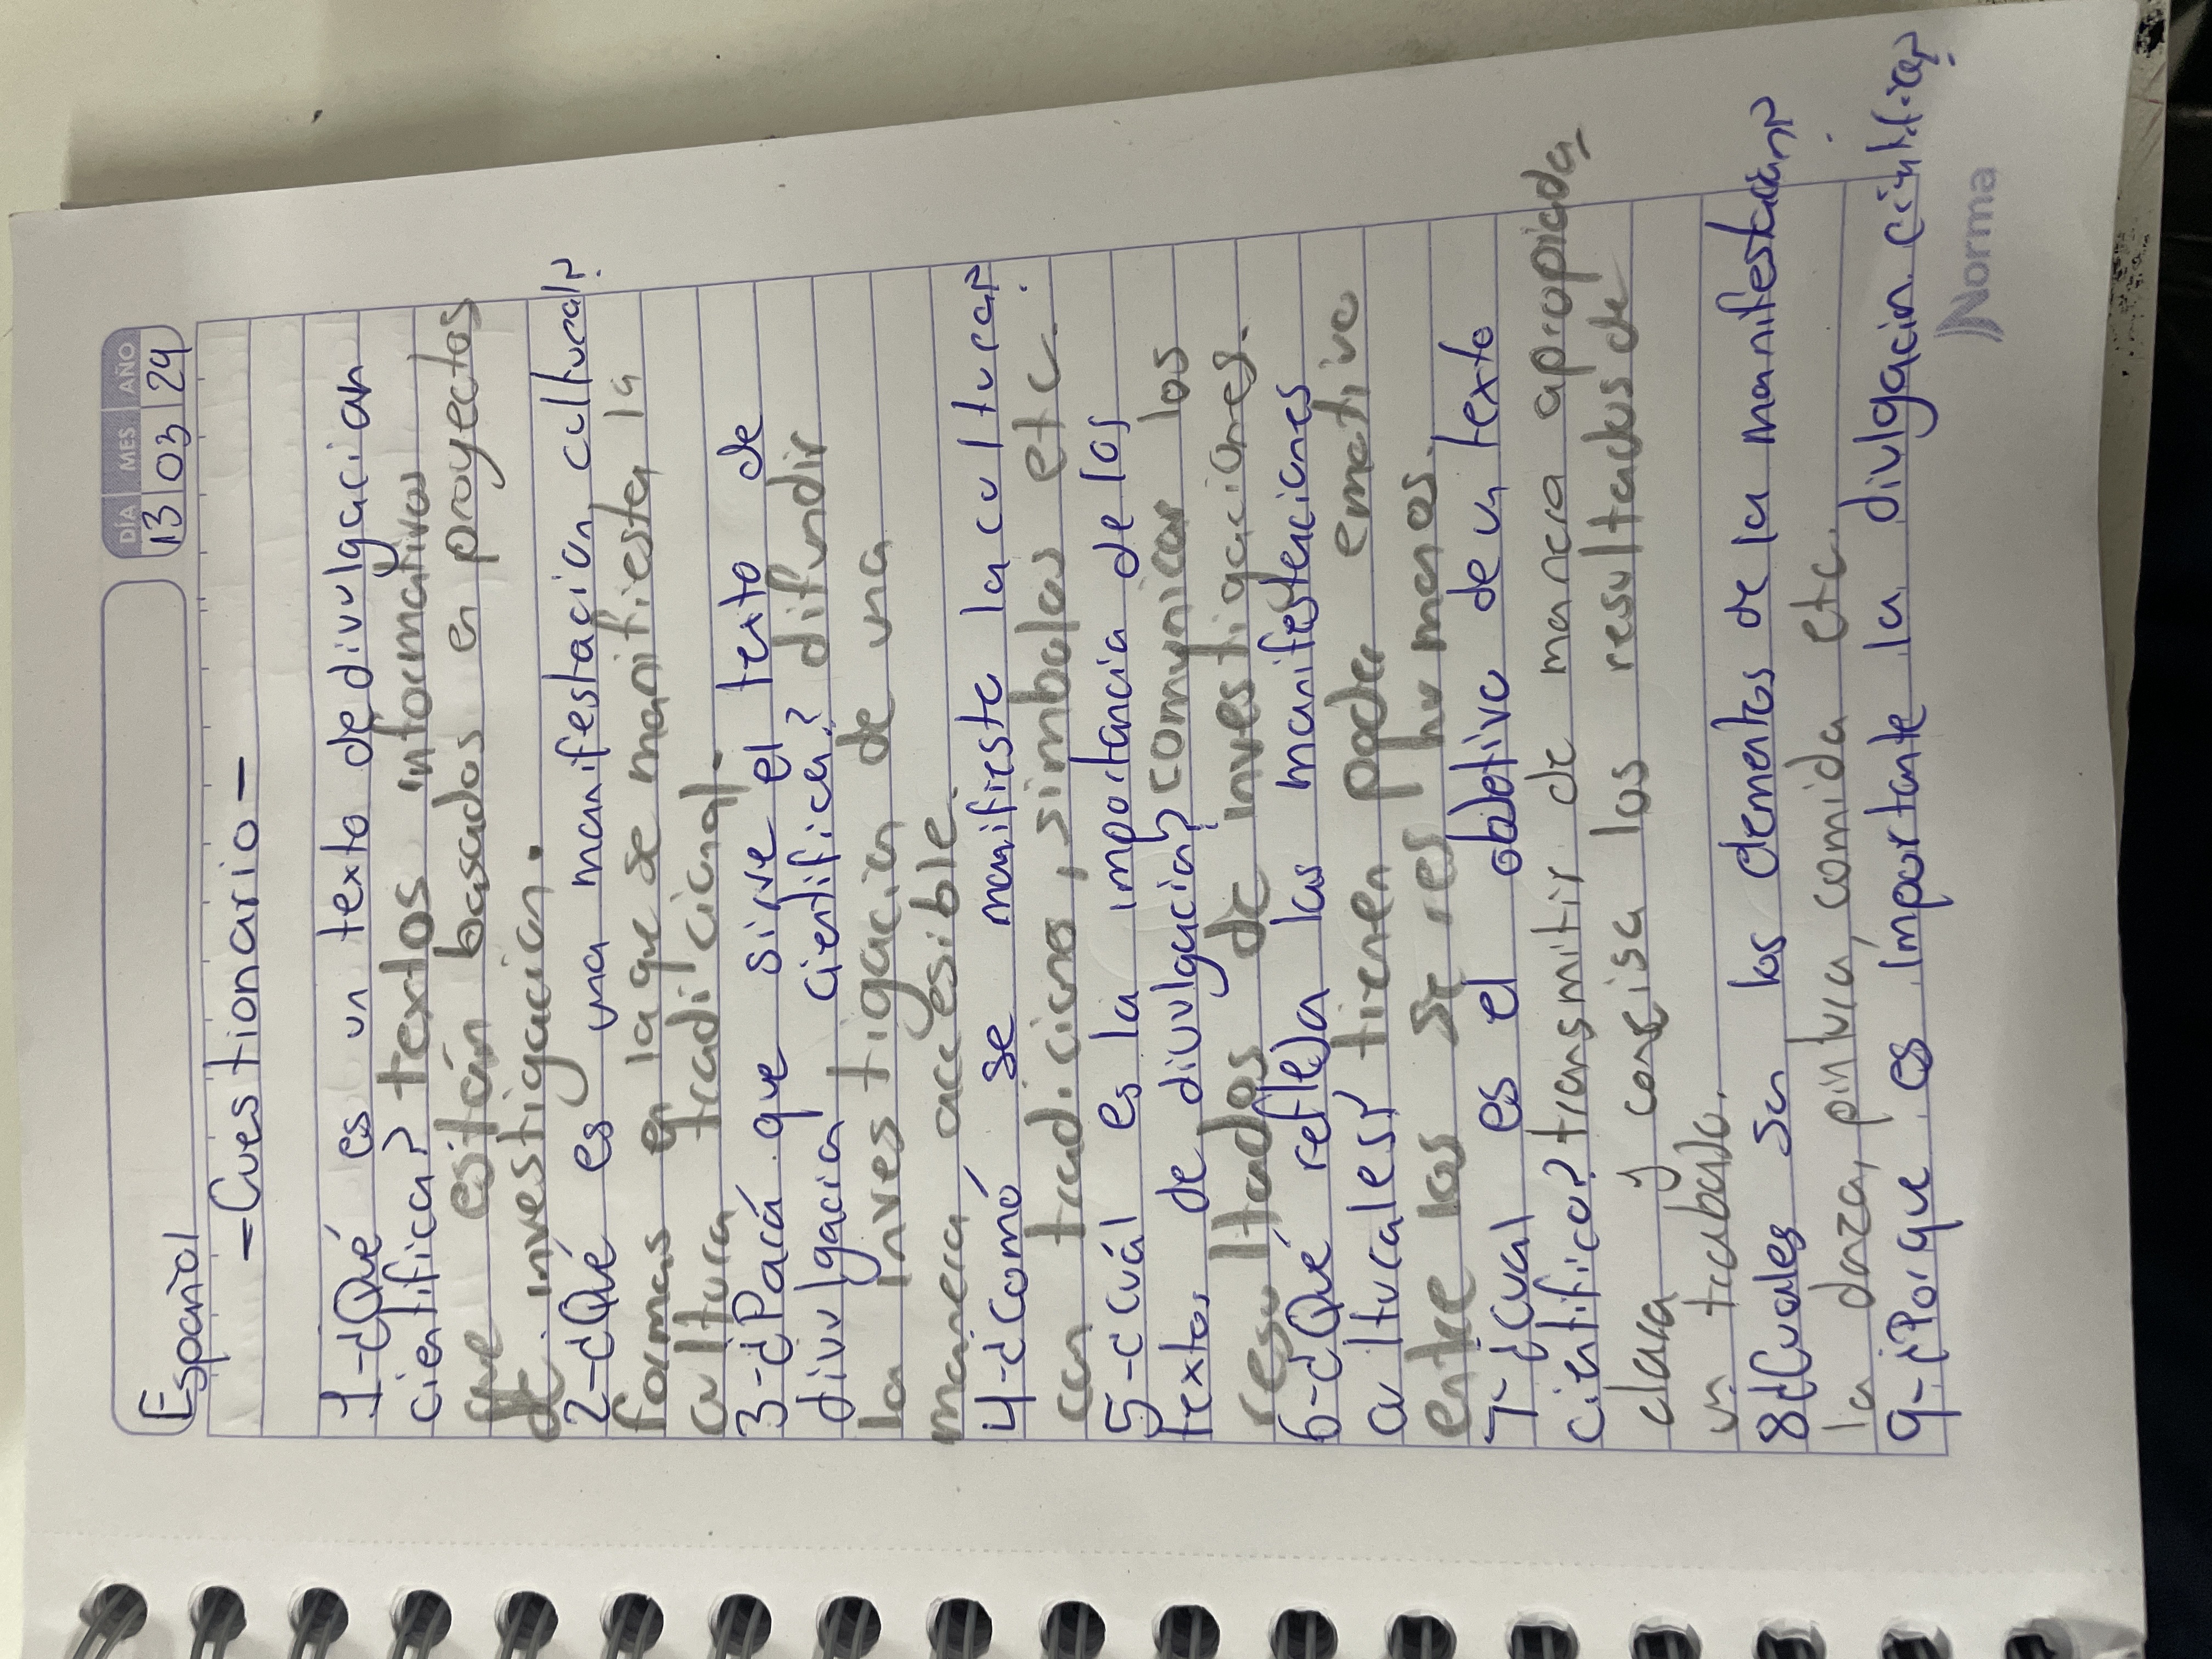 DÍA MES AÑO
Español 13 03 24
-Cuestionario-
1-¿Qué es un texto de divulgacion
cientifica? textos informativos
que están basados en proyectos
de investigacion.
2-¿Qué es una manifestacion cultural?
formas en la que se manifiesta la
cultura tradicional.
3-¿Pará que sirve el texto de
divulgacion cientifica? difundir
la investigacion de una
manera accesible.
4-¿comó se manifiesta la cultura?
con tradicions, simbolos etc.
5-¿cuál es la importancia de los
textos de divulgacion? comunicar los
resultados de investigaciones.
6-¿Qué refleja las manifestaciones
culturales? tienen poder emotivo
entre los seres humanos.
7-¿cual es el objetivo de un texto
cientifico? transmitir de manera apropiada,
clara y consisa los resultados de
un trabajo.
8¿Cuales son los elementos de la manifestacion?
la danza, pintura, comida etc.
9-¿Porque es importante la divulgacion cientifica?
Norma